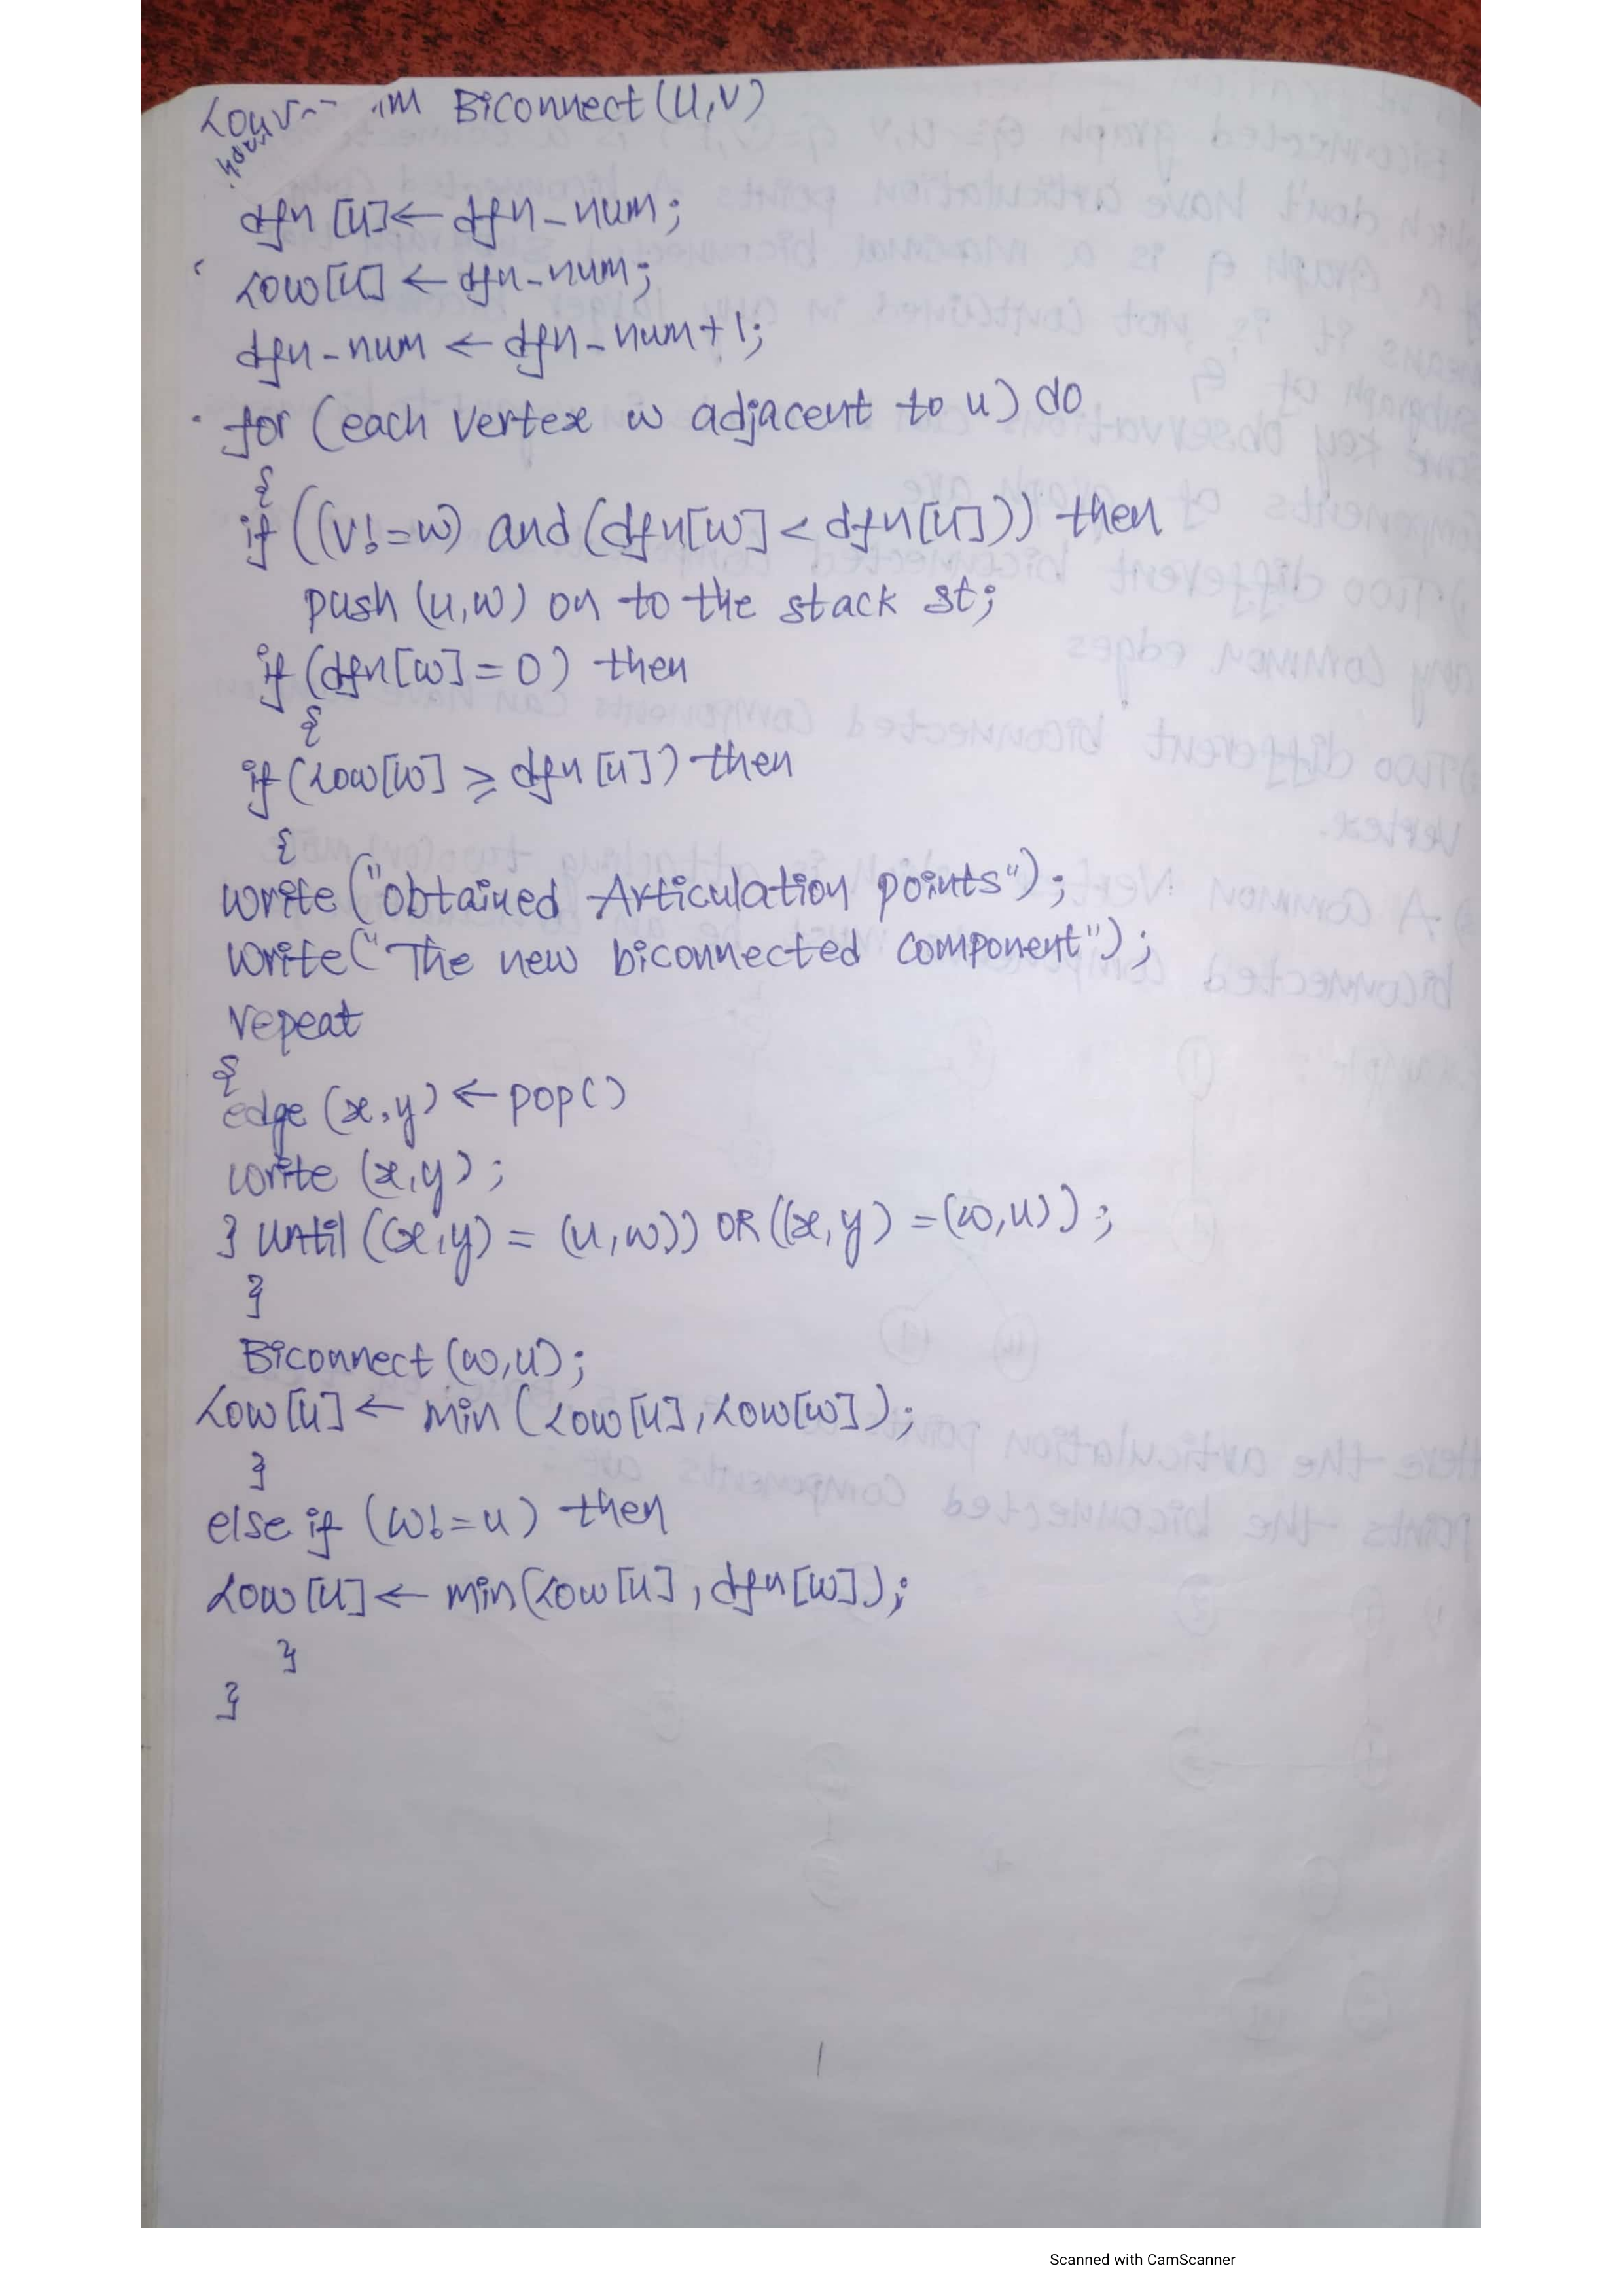 Biconnect(u,v)
dfn[u]← dfn-num;
Low[u] ← dfn-num;
dfn-num ← dfn-num+1;
for (each vertex w adjacent to u) do
{
if ((v!=w) and (dfn[w] < dfn[u])) then
push (u,w) on to the stack st;
if (dfn[w] = 0) then
{
if (Low[w] ≥ dfn[u]) then
{
write ("obtained Articulation points");
write ("The new biconnected component");
repeat
{
edge (x,y) ← pop()
write (x,y);
} until ((x,y) = (u,w)) OR ((x,y) = (w,u));
}
Biconnect (w,u);
Low[u] ← min (Low[u], Low[w]);
}
else if (w!=u) then
Low[u] ← min(Low[u], dfn[w]);
}
}
Scanned with CamScanner